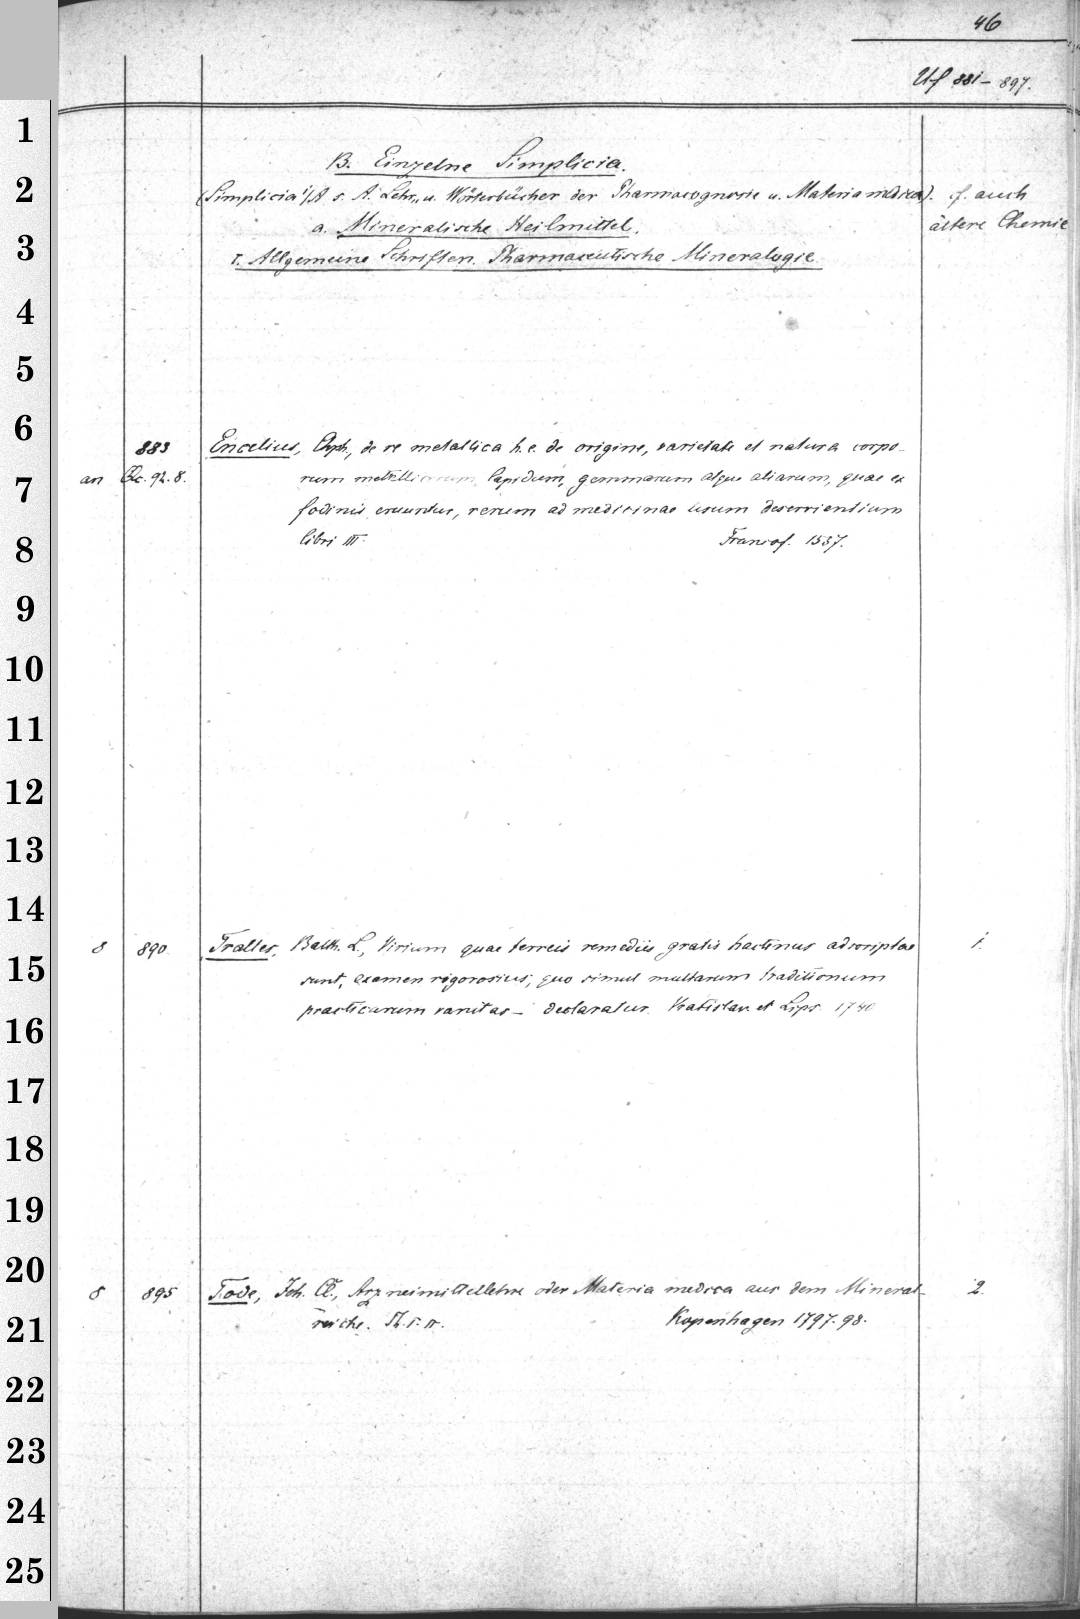 46
Uf 881-897.
B. Einzelne Simplicia.
(Simplicia s. A. Lehr- u. Wörterbücher der Pharmacognosie u. Materia medica). cf. auch
a. Mineralische Heilmittel. ältere Chemie
I. Allgemeine Schriften. Pharmaceutische Mineralogie.
883 Encelius, Chph., de re metallica h. e. de origine, varietate et natura corpo-
an Cc. 92. 8. rum metallicorum, lapidum, gemmarum atque aliarum, quae ex
fodinis eruuntur, rerum ad medicinae usum deservientium
libri III. Francof. 1557.
8 890. Tralles, Balth. L., Virium quae terreis remediis gratis hactinus adscriptae 1.
sunt, examen rigorosius, quo simul multarum traditionum
practicarum vanitas - declaratur. Vratislav. et Lips. 1740
8 895 Tode, Joh. Cl., Arzneimittellehre oder Materia medica aus dem Mineral- 2.
reiche. Th. I. II. Kopenhagen 1797. 98.
1
2
3
4
5
6
7
8
9
10
11
12
13
14
15
16
17
18
19
20
21
22
23
24
25